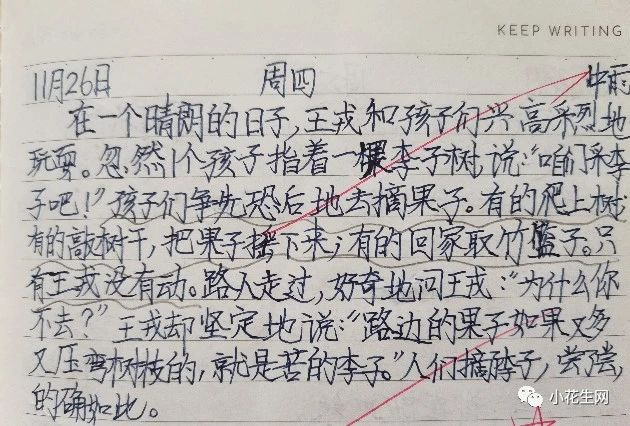 KEEP WRITING
11月26日 周四 中雨
在一个晴朗的日子,王戎和孩子们兴高采烈地
玩耍。忽然1个孩子指着一棵李子树说:“咱们采李
子吧!”孩子们争先恐后地去摘果子。有的爬上树,
有的敲树干,把果子摇下来;有的回家取竹篮子。只
有王戎没有动。路人走过,好奇地问王戎:“为什么你
不去?”王戎却坚定地说:“路边的果子如果又多
又压弯树枝的,就是苦的李子。”人们摘李子,尝尝,
的确如此。
小花生网